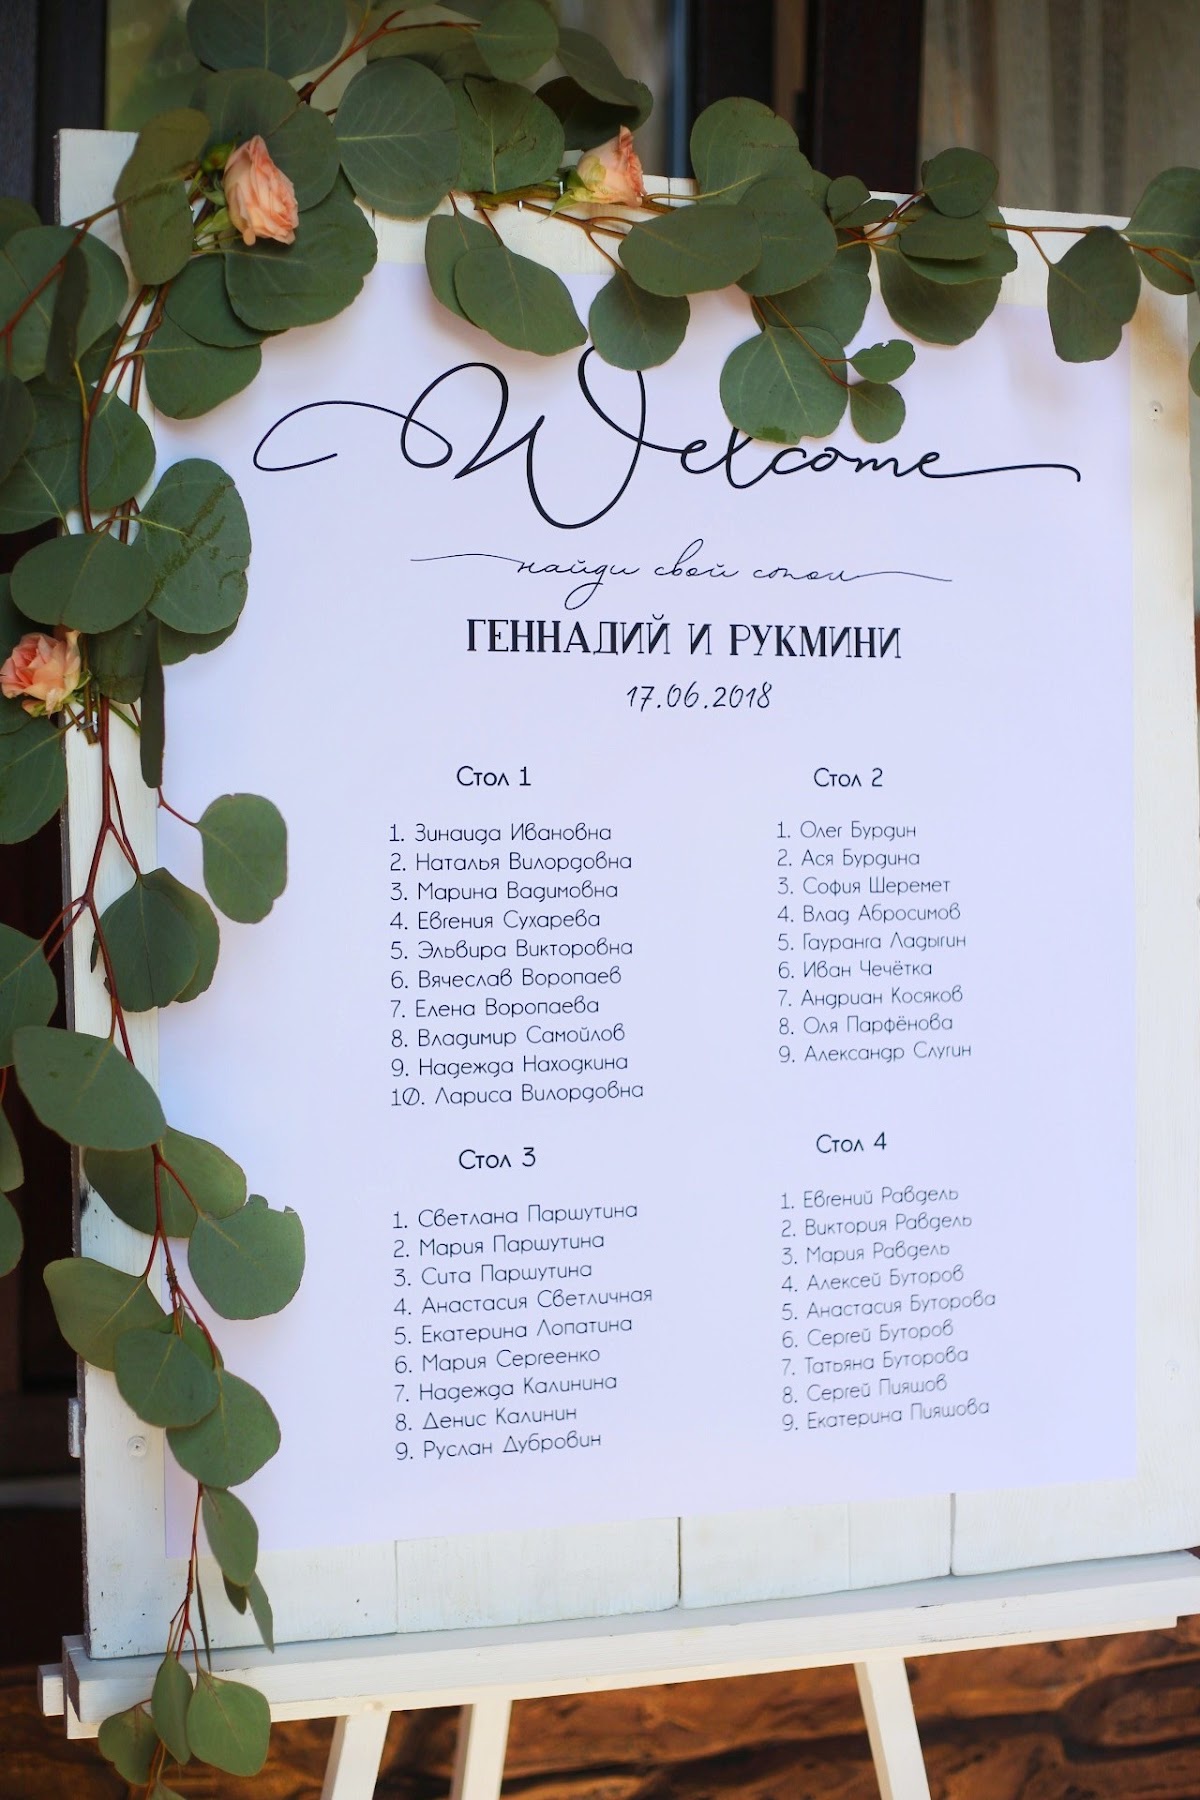 Welcome
найди свой стол
ГЕННАДИЙ И РУКМИНИ
17.06.2018
Стол 1
1. Зинаида Ивановна
2. Наталья Вилордовна
3. Марина Вадимовна
4. Евгения Сухарева
5. Эльвира Викторовна
6. Вячеслав Воропаев
7. Елена Воропаева
8. Владимир Самойлов
9. Надежда Находкина
10. Лариса Вилордовна
Стол 2
1. Олег Бурдин
2. Ася Бурдина
3. София Шеремет
4. Влад Абросимов
5. Гауранга Ладыгин
6. Иван Чечётка
7. Андриан Косяков
8. Оля Парфёнова
9. Александр Слугин
Стол 3
1. Светлана Паршутина
2. Мария Паршутина
3. Сита Паршутина
4. Анастасия Светличная
5. Екатерина Лопатина
6. Мария Сергеенко
7. Надежда Калинина
8. Денис Калинин
9. Руслан Дубровин
Стол 4
1. Евгений Равдель
2. Виктория Равдель
3. Мария Равдель
4. Алексей Буторов
5. Анастасия Буторова
6. Сергей Буторов
7. Татьяна Буторова
8. Сергей Пияшов
9. Екатерина Пияшова